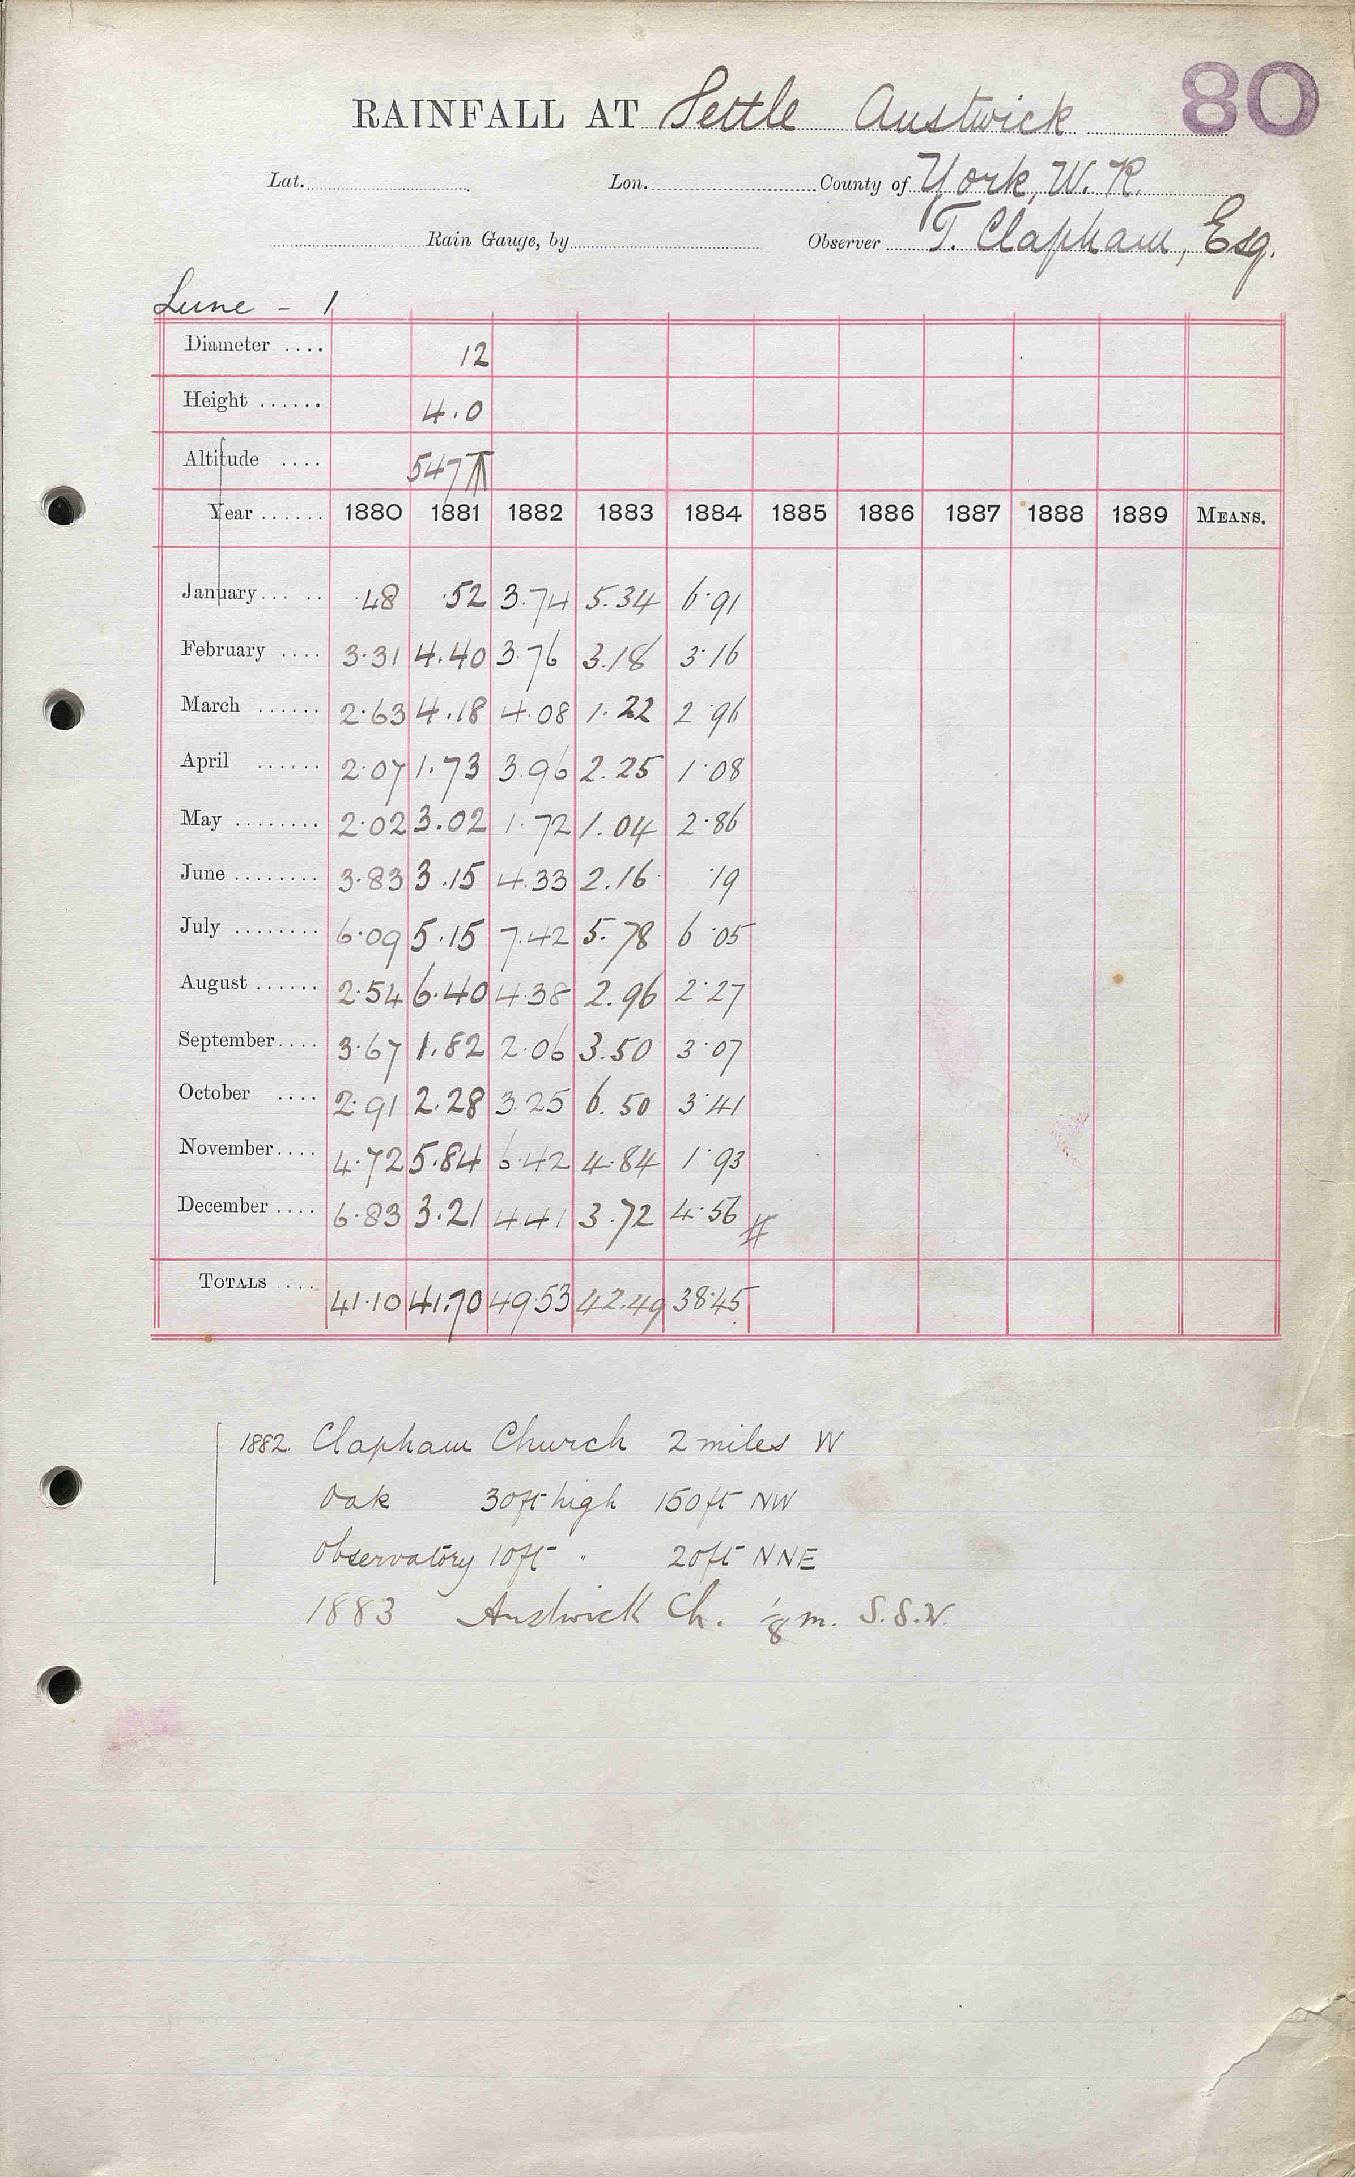 80
RAINFALL AT Settle Austwick
Lat. Lon. County of York, W. R.
Rain Gauge, by Observer T. Clapham, Esq.
Lune - 1
Diameter .... 12
Height ...... 4.0
Altitude .... 547
Year ...... 1880 1881 1882 1883 1884 1885 1886 1887 1888 1889 MEANS.
January... .. .48 .52 3.74 5.34 6.91
February .... 3.31 4.40 3.76 3.18 3.16
March ...... 2.63 4.18 4.08 1.22 2.96
April ...... 2.07 1.73 3.96 2.25 1.08
May ........ 2.02 3.02 1.72 1.04 2.86
June ........ 3.83 3.15 4.33 2.16 .19
July ........ 6.09 5.15 7.42 5.78 6.05
August ...... 2.54 6.40 4.38 2.96 2.27
September.... 3.67 1.82 2.06 3.50 3.07
October .... 2.91 2.28 3.25 6.50 3.41
November.... 4.72 5.84 6.42 4.84 1.93
December .... 6.83 3.21 4.41 3.72 4.56
TOTALS .... 41.10 41.70 49.53 42.49 38.45
1882. Clapham Church 2 miles W
Oak 30ft high 150ft NW
Observatory 10ft " 20ft NNE
1883 Austwick Ch. 1/8 m. S.S.W.